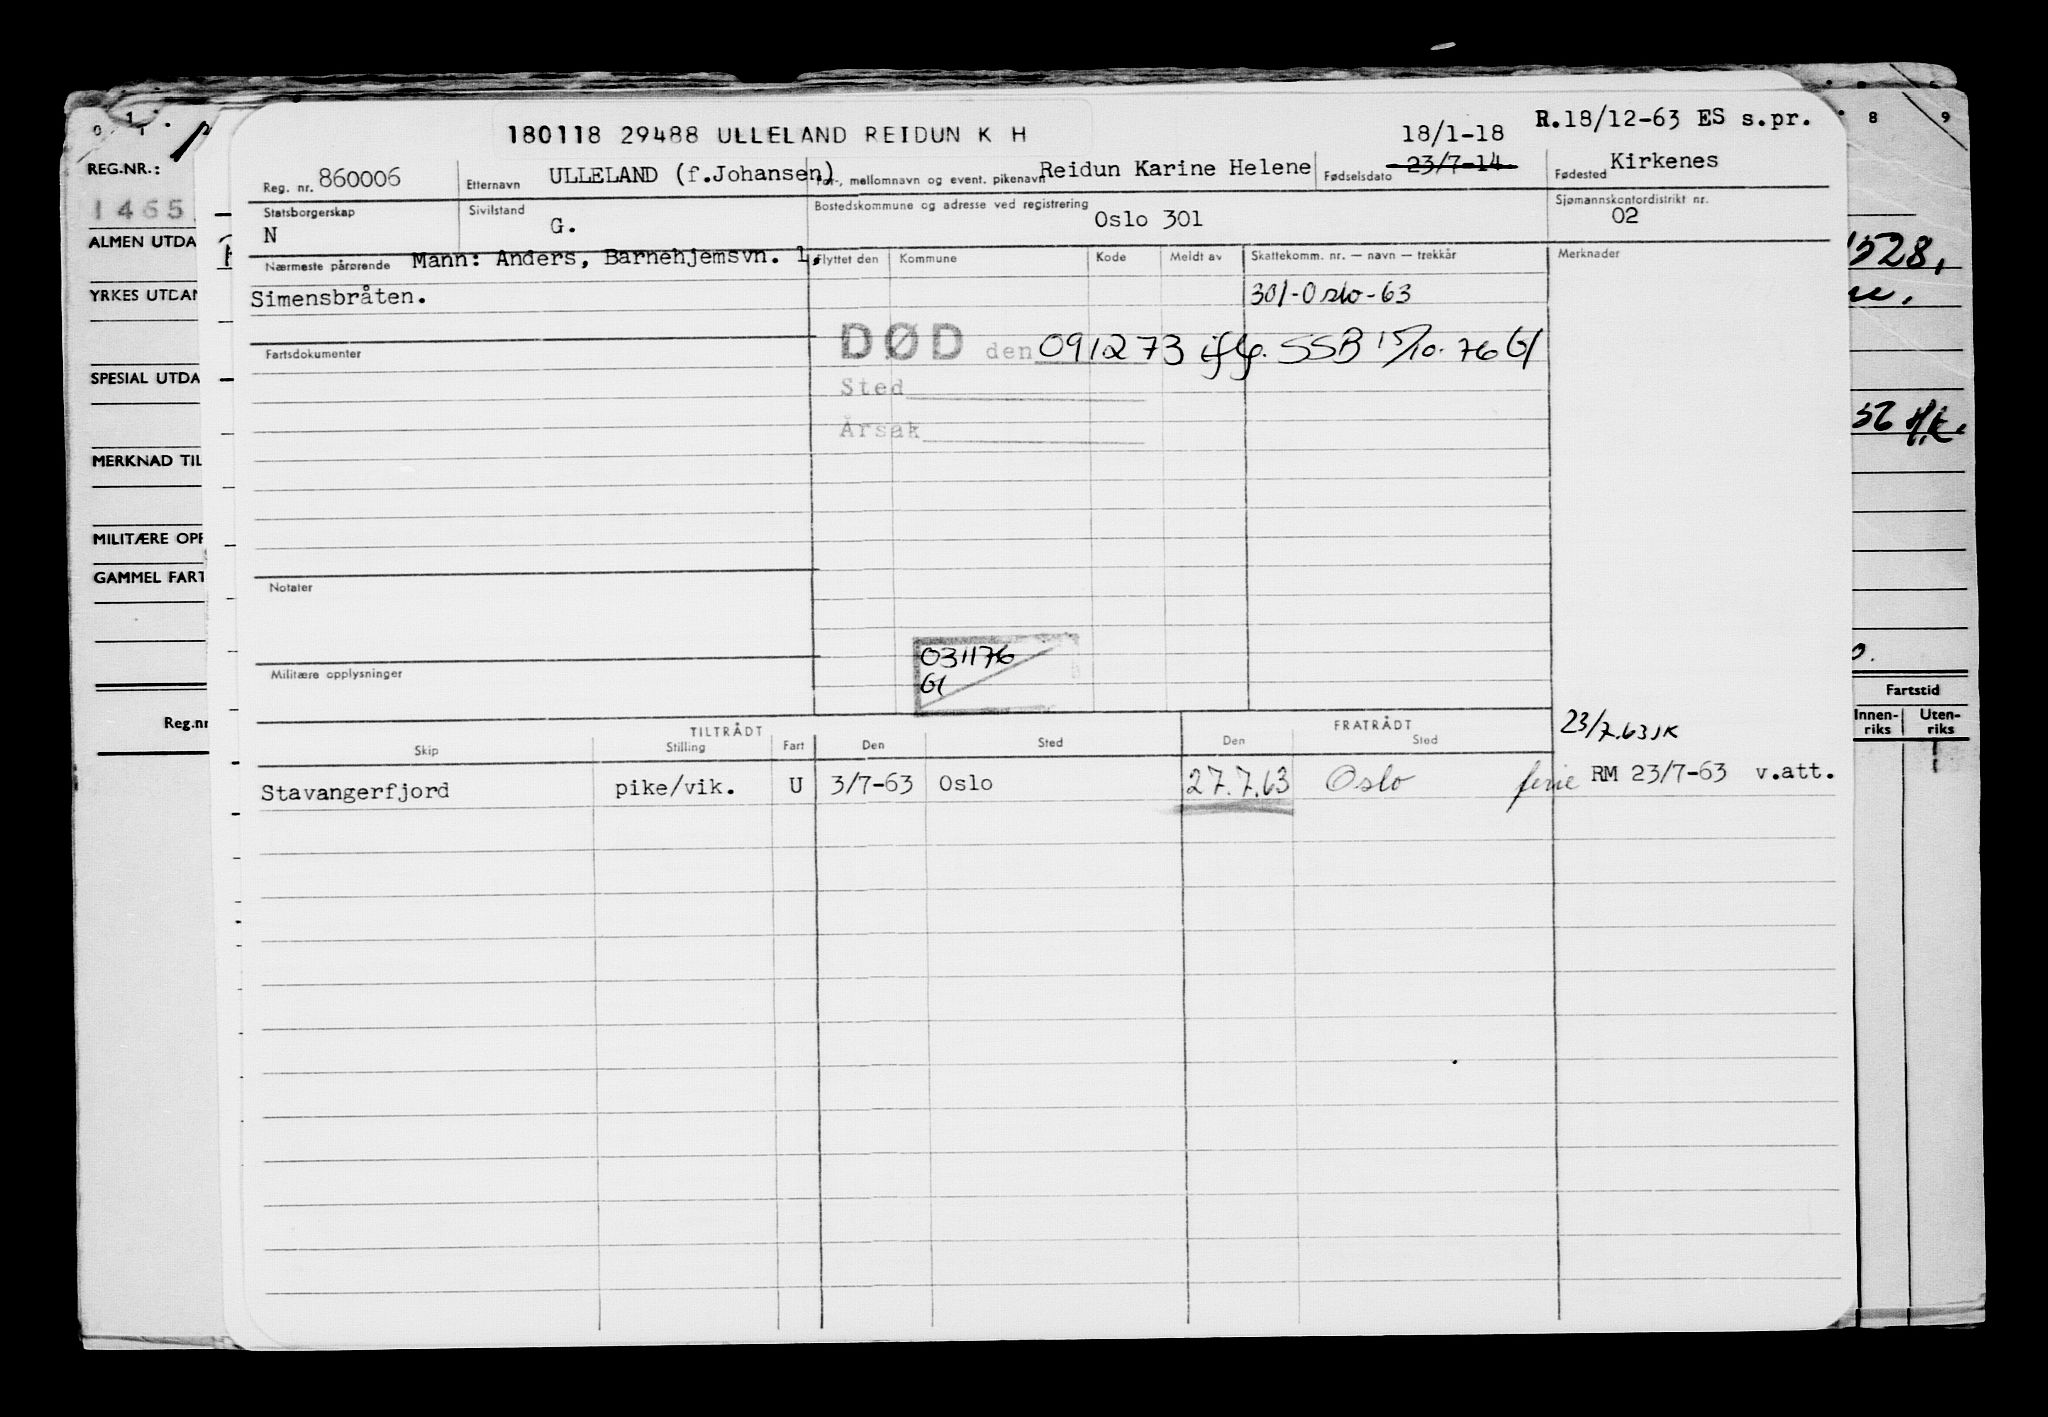 180118 29488 ULLELAND REIDUN K H
18/1-18
R.18/12-63 ES s.pr.
Reg. nr. 860006
Etternavn ULLELAND (f.Johansen)
For-, mellomnavn og event. pikenavn Reidun Karine Helene
Fødselsdato 23/7-14
Fødested Kirkenes
Statsborgerskap N
Sivilstand G.
Bostedskommune og adresse ved registrering Oslo 301
Sjømannskontordistrikt nr. 02
Nærmeste pårørende Mann: Anders, Barnehjemsvn. 1,
Simensbråten.
Flyttet den Kommune Kode Meldt av Skattekomm. nr. — navn — trekkår Merknader
301-Oslo-63
Fartsdokumenter
DØD den 091273 iflg. SSB 15/10.76 GI
Sted
Årsak
Notater
031176
GI
Militære opplysninger
TILTRÅDT FRATRÅDT
23/7.63 JK
Skip Stilling Fart Den Sted Den Sted
Stavangerfjord pike/vik. U 3/7-63 Oslo 27.7.63 Oslo ferie RM 23/7-63 v.att.
0 1
REG.NR.:
1465
ALMEN UTDA
YRKES UTDAN
SPESIAL UTDA
MERKNAD TIL
MILITÆRE OPP
GAMMEL FART
Reg.nr
8 9
528,
56 H.K.
Fartstid
Innen-riks Uten-riks